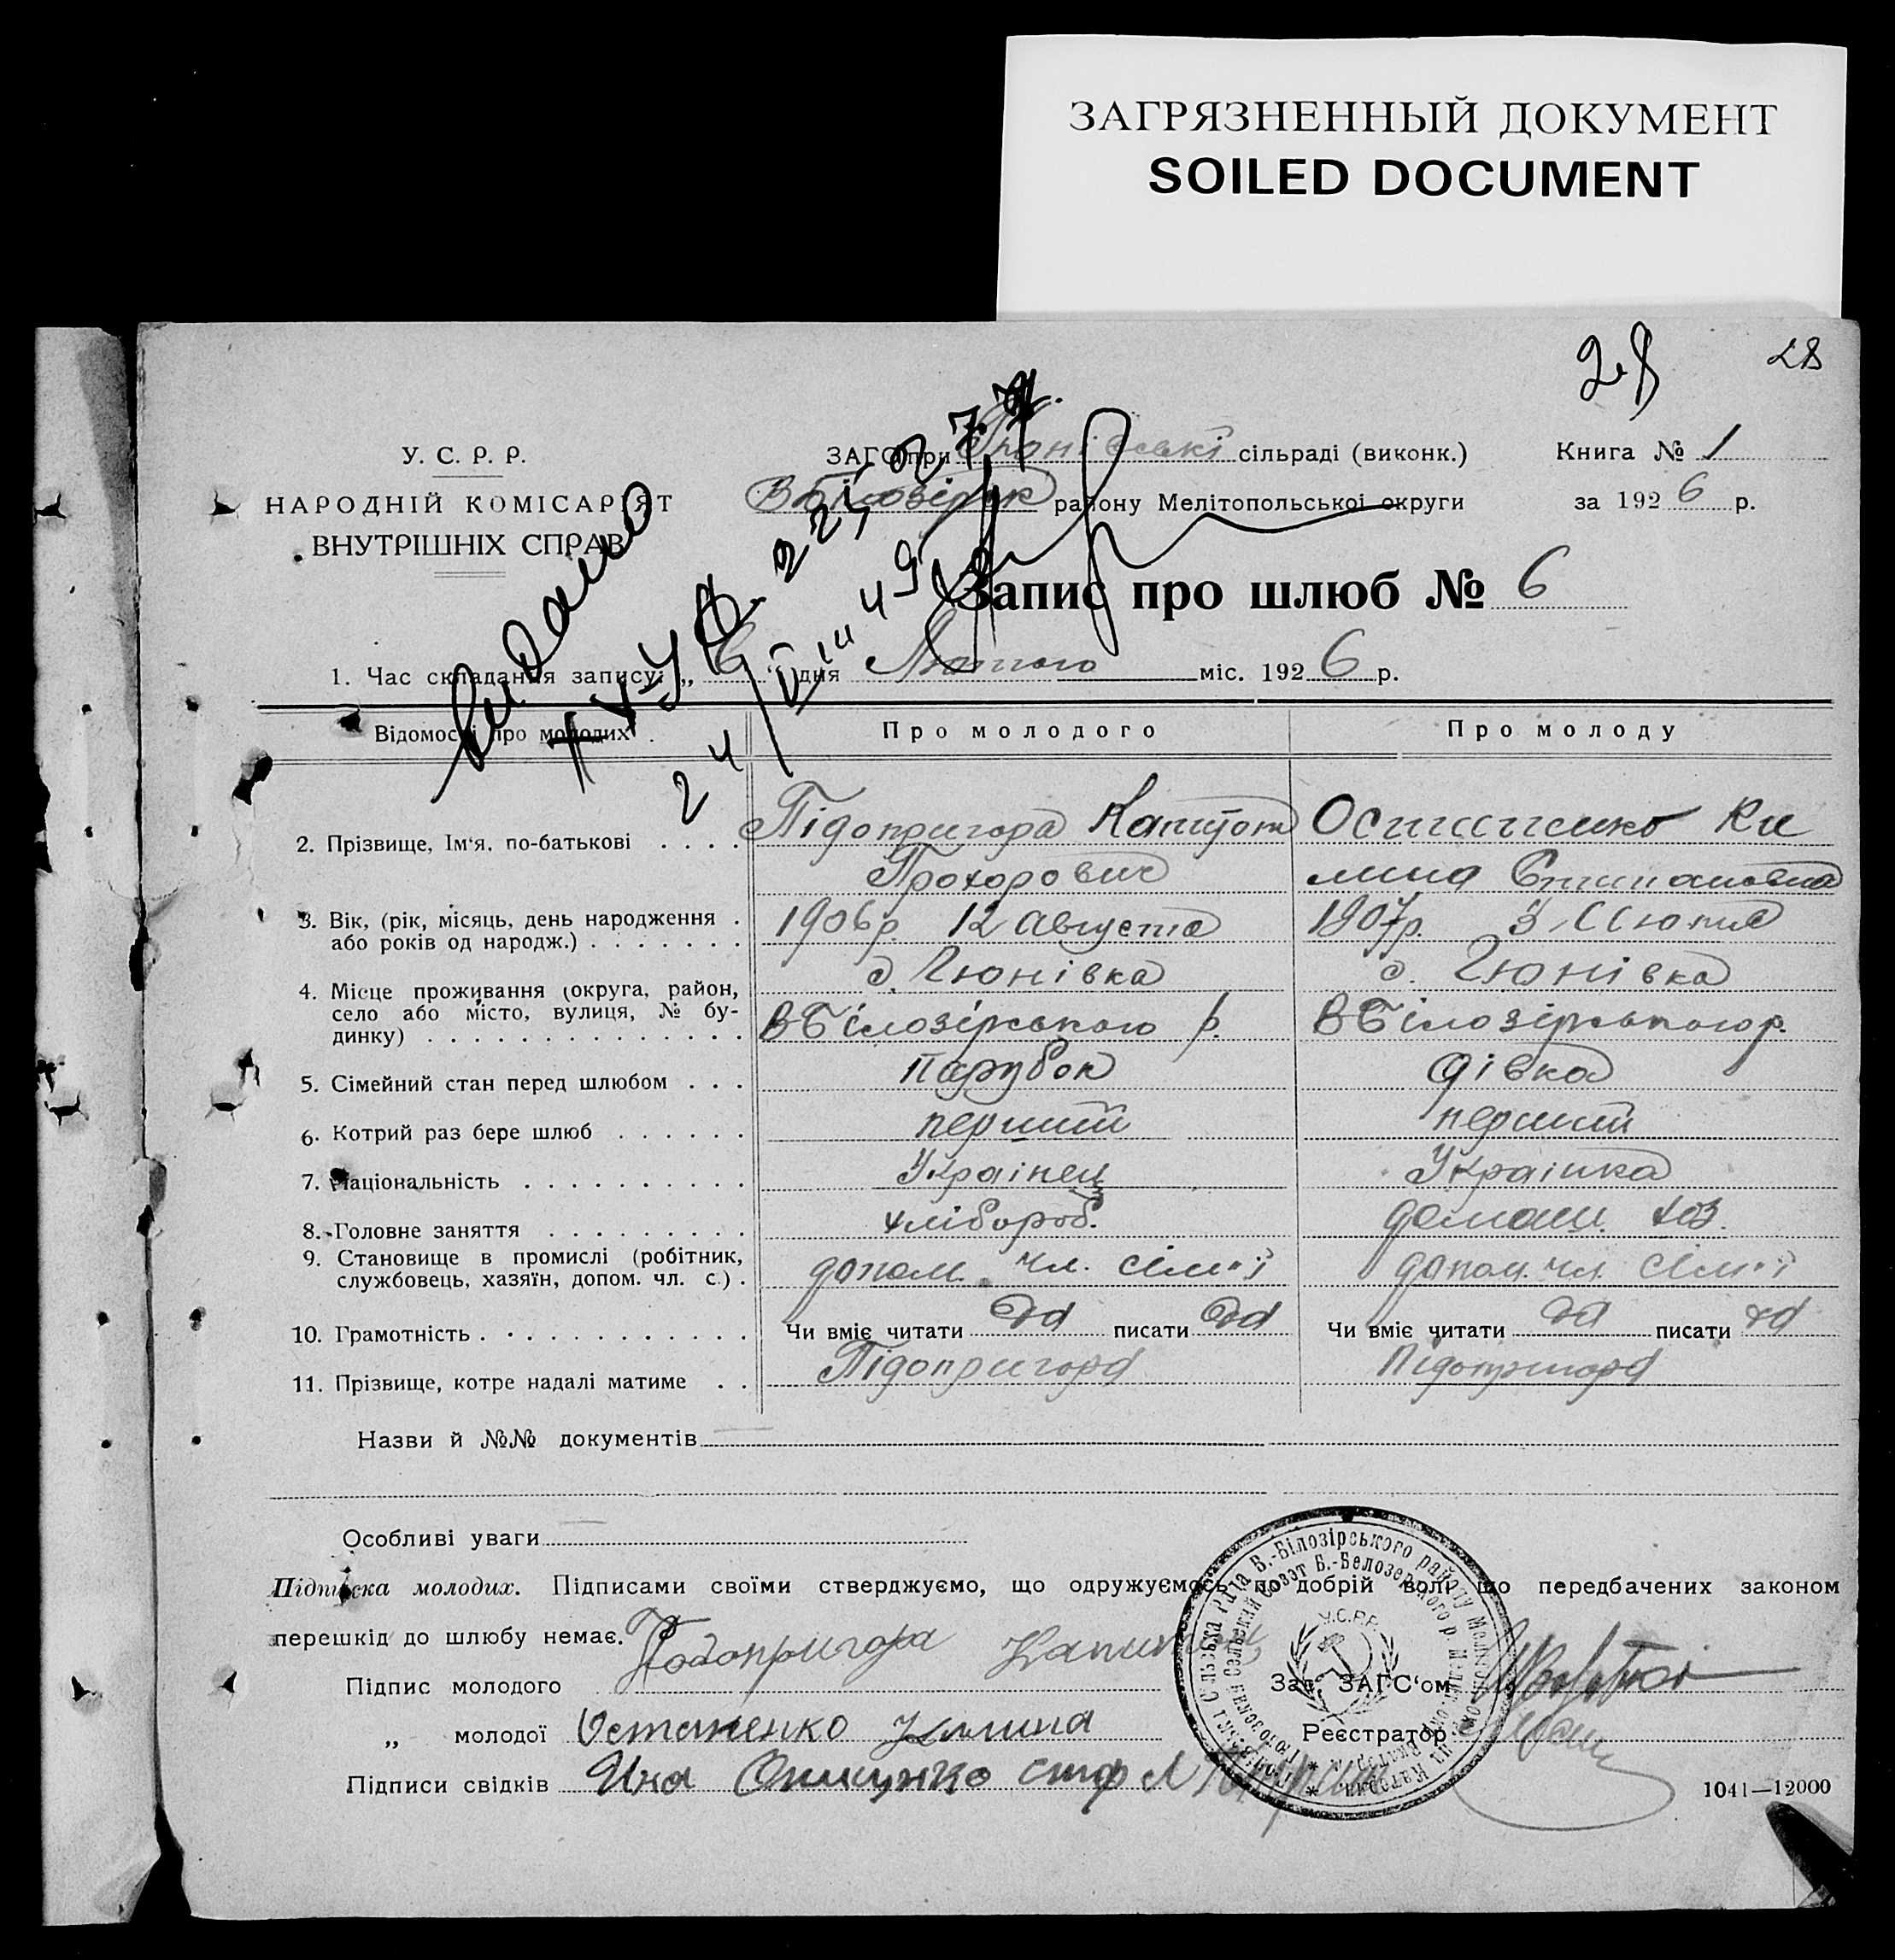 ЗАГРЯЗНЕННЫЙ ДОКУМЕНТ
SOILED DOCUMENT
28 28
У. С. Р. Р.
НАРОДНІЙ КОМІСАРІЯТ
ВНУТРІШНІХ СПРАВ
ЗАГС при сільраді (виконк.)
В Білозірск району Мелітопольської округи
Книга № 1
за 1926 р.
Запис про шлюб № 6
1. Час складання запису: „6“ дня Лютого міс. 1926 р.
Відомості про молодих. Про молодого Про молоду
2. Прізвище, Ім'я, по-батькові . . . . Підопригора Капитон Ки
Прохорович лина
3. Вік, (рік, місяць, день народження . 1906 р. 12 августа 1907 р. 3
або років од народж.) . . . . . . .
4. Місце проживання (округа, район, с. Гюнівка с. Гюнівка
село або місто, вулиця, № бу- В Білозірського р. В Білозірського р.
динку) . . . . . . . . . . . . . .
5. Сімейний стан перед шлюбом . . . парубок дівка
6. Котрий раз бере шлюб . . . . . . перший перший
7. Національність . . . . . . . . . . Українец Українка
8. Головне заняття . . . . . . . . . хлібороб. домаш. хоз.
9. Становище в промислі (робітник, допом. чл. сімʼї допом. чл. сімʼї
службовець, хазяїн, допом. чл. с.) .
10. Грамотність . . . . . . . . . . . . Чи вміє читати да писати да Чи вміє читати да писати да
11. Прізвище, котре надалі матиме . . Підопригора Підопригора
Назви й №№ документів
Особливі уваги
Підписка молодих. Підписами своїми стверджуємо, що одружуємось по добрій волі, що передбачених законом
перешкід до шлюбу немає.
Підпис молодого Подопригора Капитон
„ молодої Остапенко Килина
Підписи свідків
Зав. ЗАГС'ом
Реєстратор
У.С.Р.Р.
Сільська Рада В.-Білозірського району
Сельский Совэт Б.-Белозерского р.
1041—12000